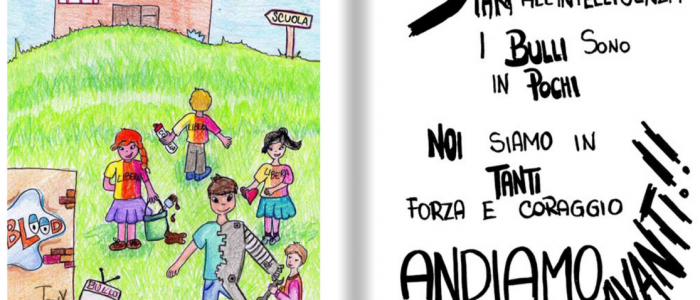 SCUOLA
LIBERA
LIBERA
LIBERA
BLOOD
BULLO
ALL'INTELLIGENZA
I BULLI SONO
IN POCHI
NOI SIAMO IN
TANTI
FORZA E CORAGGIO
ANDIAMO
AVANTI!!